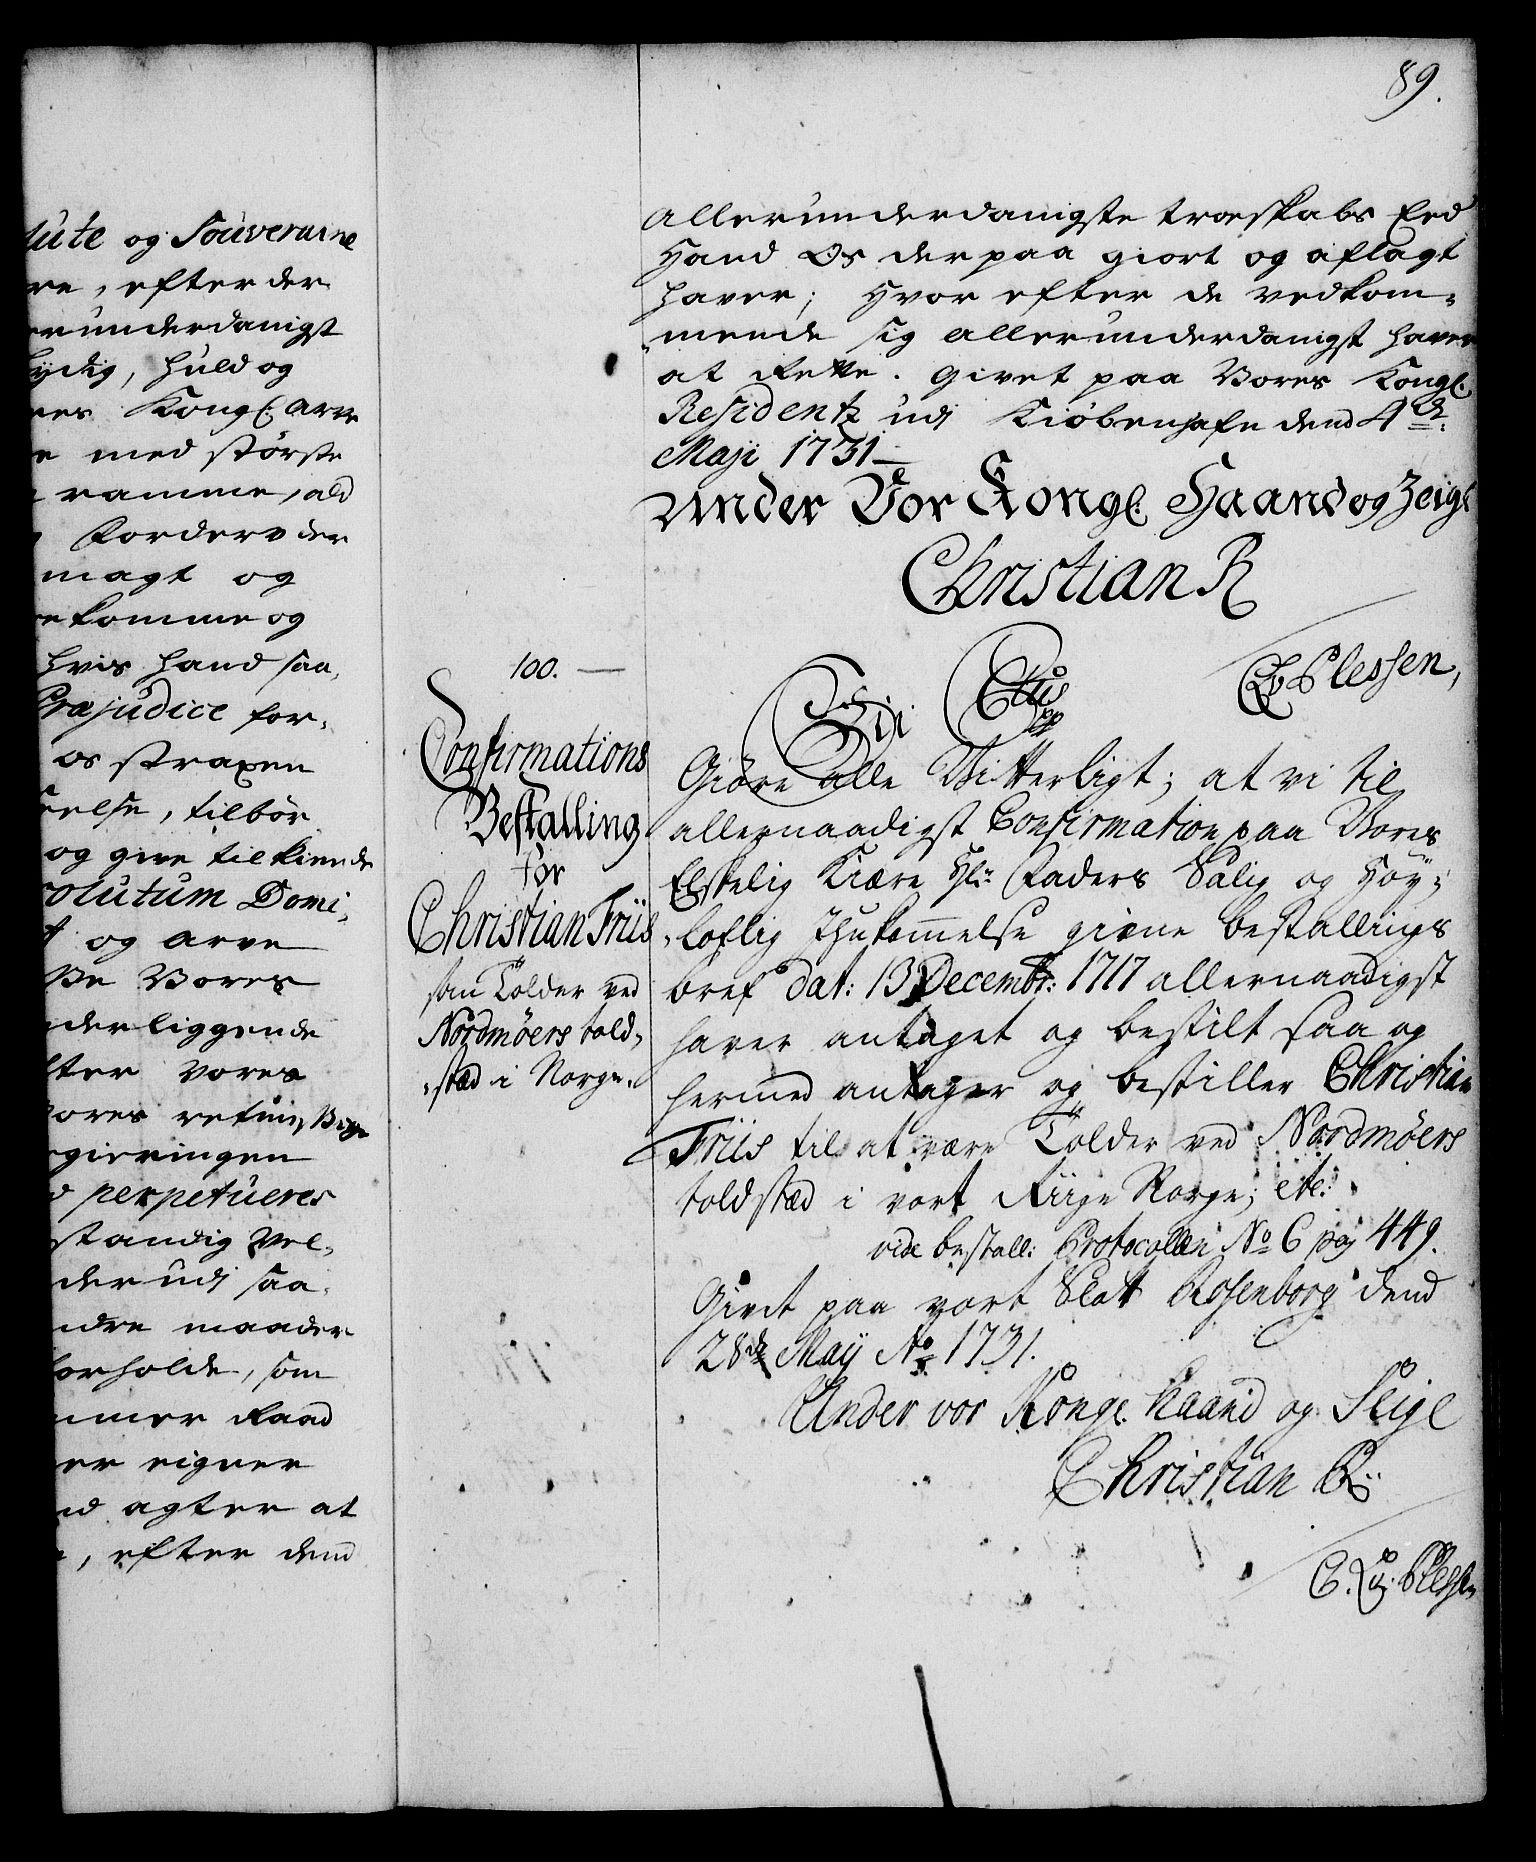 89.
lute og Souveraine
re, efter der
erunderdanigst
lydig, huld og
res Kongl. Arve
e med største
ramme, ald
Forderv der
magt og
ekomme og
hvis hand saa,
Præjudice for-
os straxen
eelse, tilbør
og give tilkiende
olutum Domi-
og arve
Vores
nderliggende
fter vores
Vores
egieringen
perpetueres
standig Vel-
der udj saa-
ndre maader
forholde, som
mmer Raad
er eigner
nd agter at
, efter dend
allerunderdanigste troeskabs Eed
Hand Os derpaa giort og aflagt
haver; Hvor efter de vedkom-
-mende sig allerunderdanigst haver
at Rette. Givet paa Vores Kongl.
Residentz udj Kiøbenhafn dend 4de
Maji 1731
Under Vor Kongl. Haand og Zeigl
Christian R
CAv Plessen,
100.
Confirmations
Bestalling
for
Christian Friis
som Tolder ved
Nordmøers told-
-stæd i Norge.
Vi Ctus
pp
Giøre alle Vitterligt; at vi til
allernaadigst Confirmation paa Vores
Elskelig Kiære Hr: Faders Salig og Høy-
-loflig Ihukommelse givne bestallings
bref dat: 13 Decembr: 1717 allernaadigst
haver antaget og bestilt saa og
hermed antager og bestiller Christian
Friis til at være Tolder ved Nordmøers
toldstæd i vort Riige Norge; etc:
vide bestall: Protocollen No 6 pag 449.
Givet paa vort Slott Rosenborg dend
28de Maij Ao 1731.
Under vor Kongl. haand og Seigl
Christian R.
C. A. v. Plessen